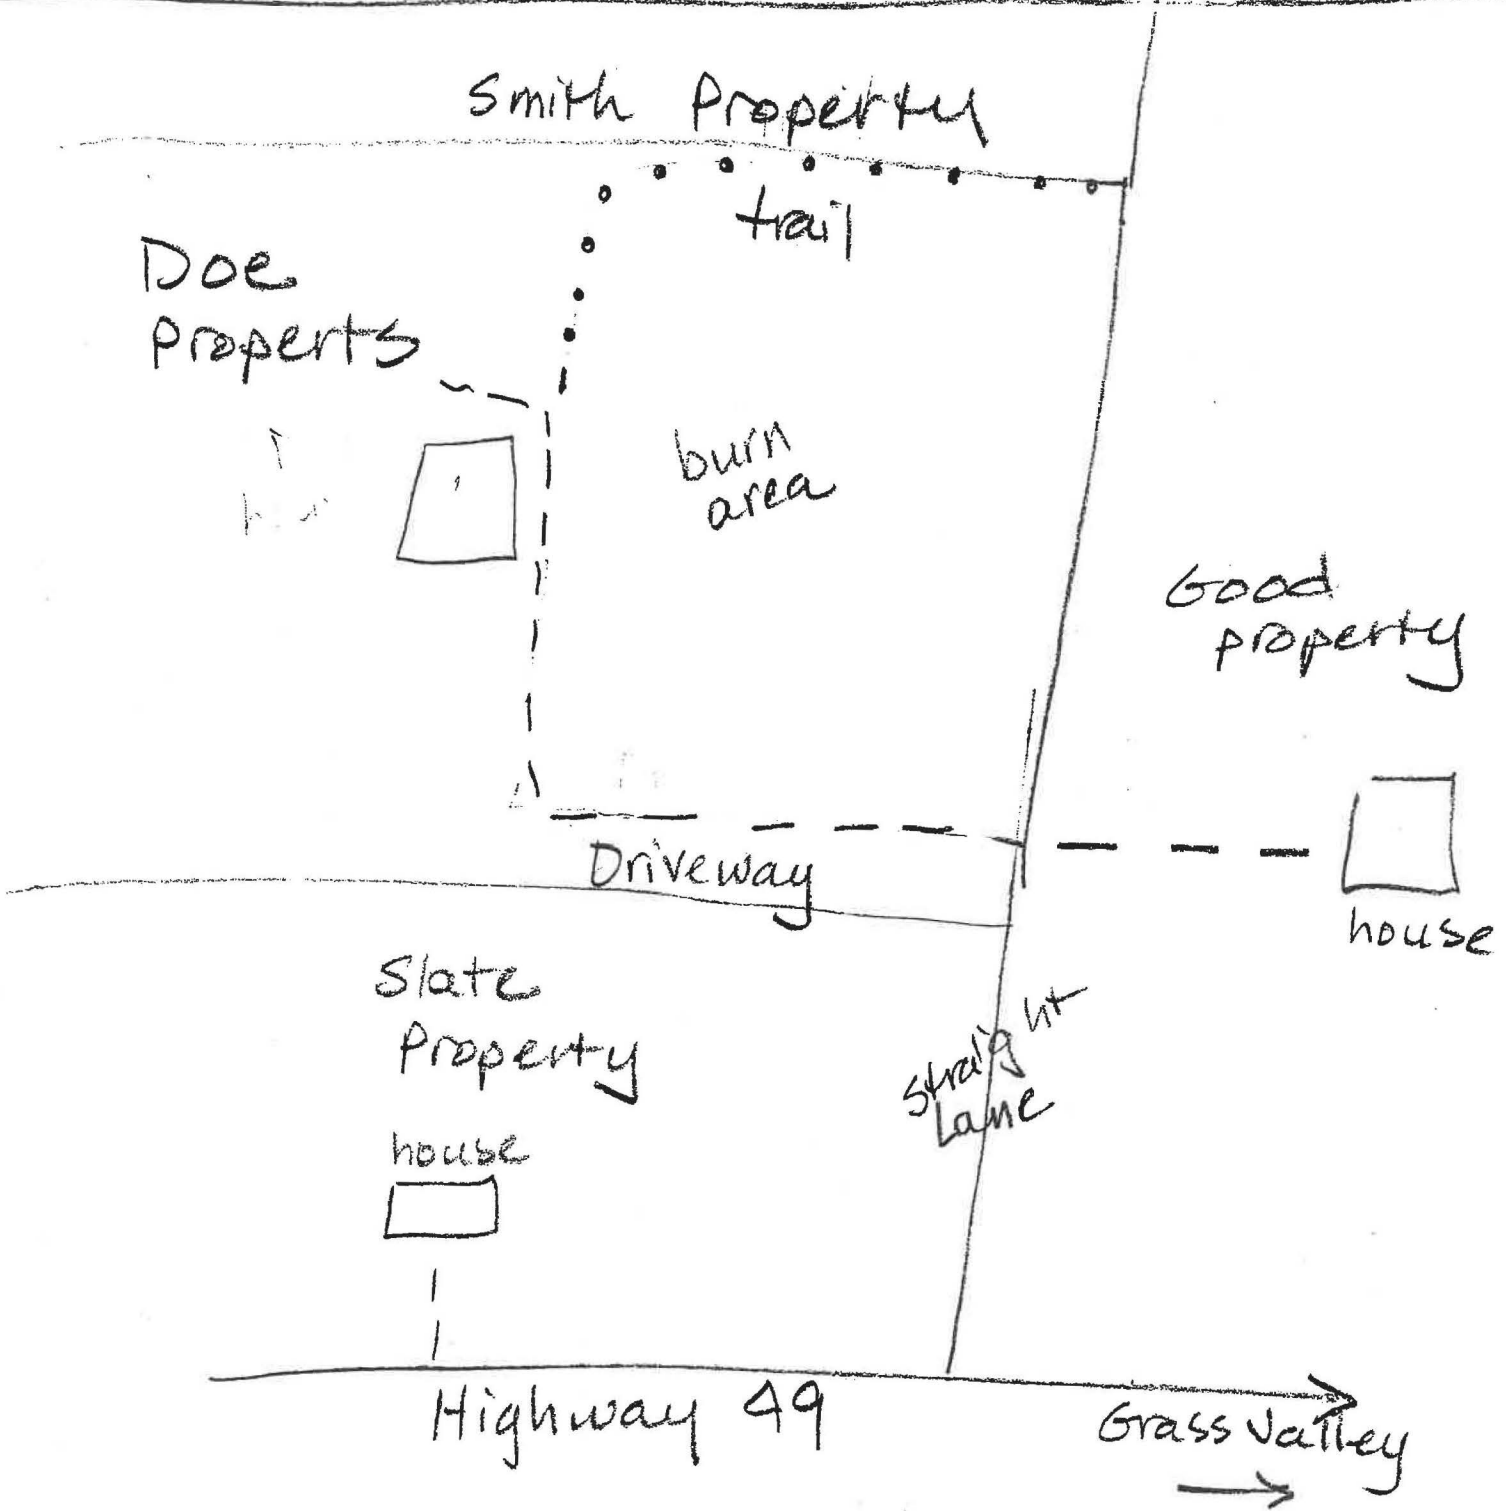 Smith Property
trail
Doe
Property
burn
area
Good
property
Driveway
house
Slate
Property
Straight
Lane
house
Highway 49
Grass Valley